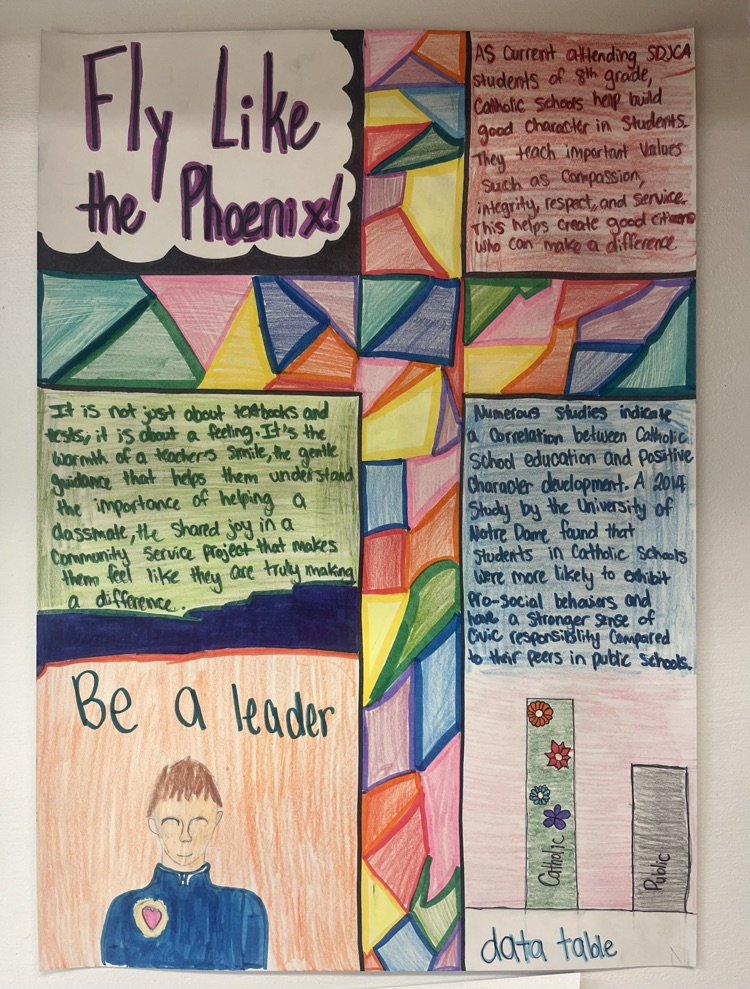 Fly Like
the Phoenix!
As Current attending SDJCA
students of 8th grade,
Catholic schools help build
good character in students.
They teach important values
such as compassion,
integrity, respect, and service.
This helps create good citizens
who can make a difference
It is not just about textbooks and
tests, it is about a feeling. It's the
warmth of a teachers smile, the gentle
guidance that helps them understand
the importance of helping a
classmate, the shared joy in a
Community service project that makes
them feel like they are truly making
a difference.
Numerous studies indicate
a correlation between Catholic
School education and Positive
Character development. A 2014
study by the University of
Notre Dame found that
students in Catholic schools
were more likely to exhibit
pro-social behaviors and
have a stronger sense of
Civic responsibility compared
to their peers in public schools.
Be a leader
Catholic
Public
data table